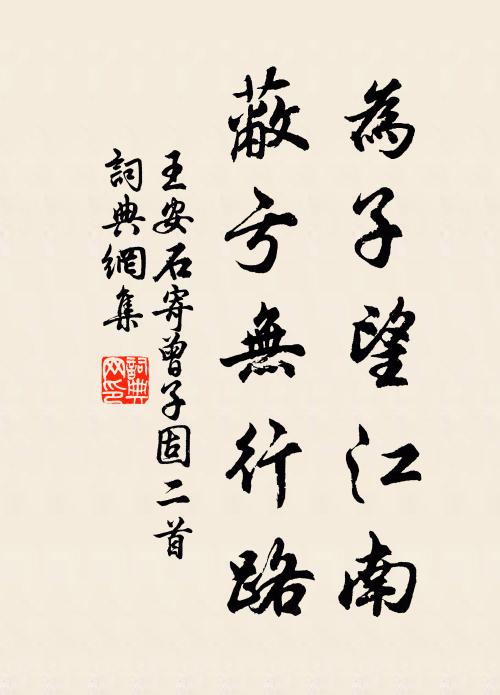 為子望江南
蔽亏無行路
王安石寄曾子固二首
詞典網集
詞典网印